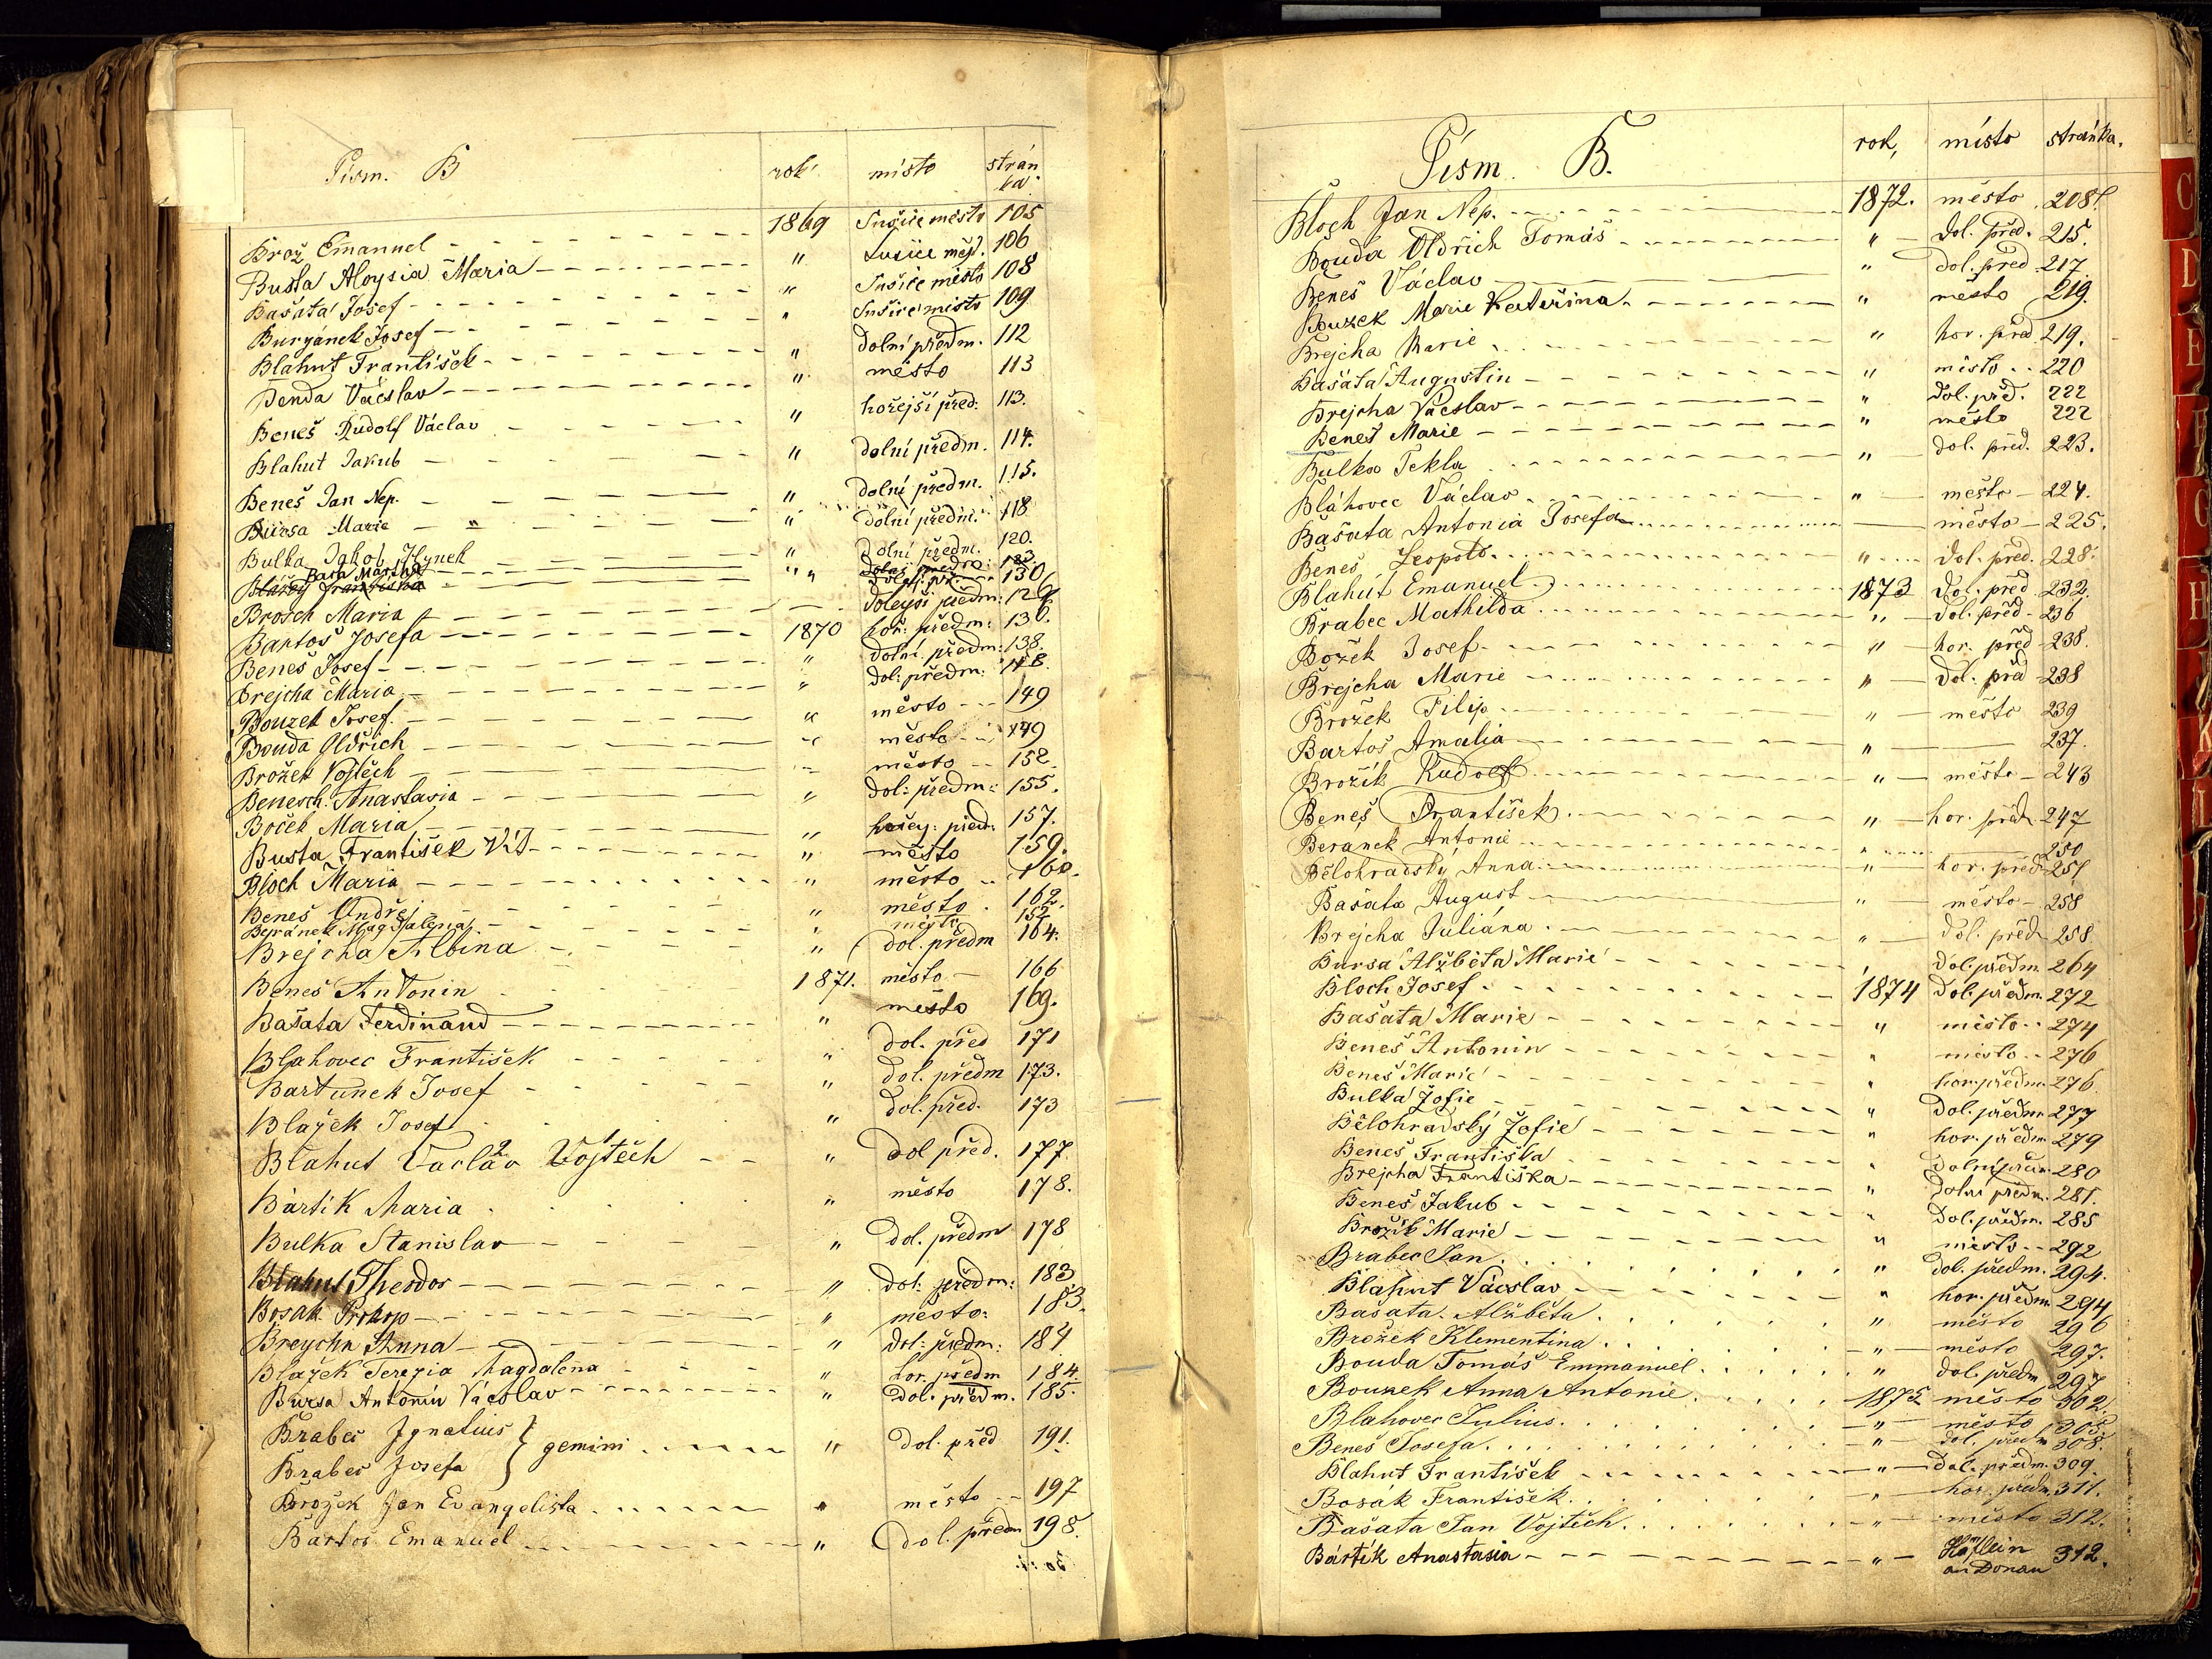 Písm. B rok místo stránka
Brož Emanuel 1869 Sušice město 105
Busta Aloysia Maria " Sušice měst. 106
Bašata Josef " Sušice město 108
Buryánek Josef " Sušice město 109
Blahut František " dolní předm. 112
Benda Václav " město 113
Beneš Rudolf Václav " hořejší před. 113.
Blahut Jakub " dolní předm. 114.
Beneš Jan Nep. " dolní předm. 115.
Bursa Marie " dolní předm. 118
Bulka Jakob Hynek " dolní předm. 120.
Brosch Maria dolejší předm: 129
Bartoš Josefa 1870 hoř: předm: 136.
Beneš Josef " dolní předm: 138.
Brejcha Maria " dol: předm:
Bouzek Josef " město 149
Bouda Oldřich " město 149
Brožek Vojtěch " město 152.
Benesch Anastasia " dol: předm: 155.
Boček Maria " hořej: před: 157.
Busta František Vít " město 159.
Bloch Maria " město 160.
Beneš Ondřej " město 162.
Beránek Magdalena " město 152
Brejcha Albina " dol. předm 164.
Beneš Antonin 1871. město 166
Bašata Ferdinand " město 169.
Blahovec František " dol. před 171
Bartunek Josef " dol. předm 173.
Blažek Josef " dol. před. 173
Blahut Vaclav 2 Vojtěch 1 " dol před. 177.
Bártík Maria " město 178.
Bulka Stanislav " dol. předm 178
Blahut Theodor " dol. předm: 183
Bosak Prokop " město: 183.
Breycha Anna " dol: předm: 184
Blažek Terezia Magdalena " hor. předm 184.
Bursa Antonín Václav " dol. předm. 185.
Brabec Ignatius } gemini " dol. před 191.
Brabec Josefa
Brožek Jan Evangelista " město 197
Bartoš Emanuel " dol. předm 198.
Písm. B. rok, místo stránka.
Bloch Jan Nep. 1872. město 208.
Bouda Oldřich Tomáš " dol. před. 215.
Beneš Václav " dol. před 217.
Bouzek Marie Kateřina " město 219.
Brejcha Marie " hor. před 219.
Bašata Augustin " město 220
Brejcha Václav " dol. před. 222
Beneš Marie " město 222
Bulka Tekla " dol. před. 223.
Bláhovec Václav " město 224.
Bašata Antonia Josefa město 225.
Beneš Leopold " dol. před. 228.
Blahút Emanuel 1873 dol. před 232.
Brabec Mathilda " dol. před 236
Božek Josef " hor. před 238.
Brejcha Marie " dol. před 238
Brožek Filip " město 239
Bartoš Amalia " 237.
Brožík Rudolf " město 243
Beneš František " hor. před. 247
Beránek Antonie " 250
Bělohradský Anna " hor. před 257
Bašata August " město 258
Brejcha Juliána " dol. před 258
Bursa Alžběta Marie dol. předm. 264
Bloch Josef 1874 dol. předm. 272
Bašata Marie " město 274
Beneš Antonin " město 276
Beneš Marie " hor. předm. 276
Bulka Žofie " dol. předm 277
Bělohradský Žofie " hor. předm. 279
Beneš Františka " dolní předm. 280
Brejcha Františka " dolní předm. 281.
Beneš Jakub " dol. předm. 285
Brožík Marie " město 292
Brabec Jan " dol. předm. 294.
Blahut Václav " hor. předm 294
Bašata Alžběta " město 296
Brožek Klementina " město 297.
Bouda Tomáš Emmanuel " dol. předm 297
Bouzek Anna Antonie 1875 město 302.
Blahovec Julius " město 305
Beneš Josefa " dol. předm 308.
Blahut František " dol. předm. 309.
Bosák František " hor. předm. 311.
Bašata Jan Vojtěch " město 312.
Bártík Anastasia " Höflein an Donau 312.
C
D
E
F
G
H